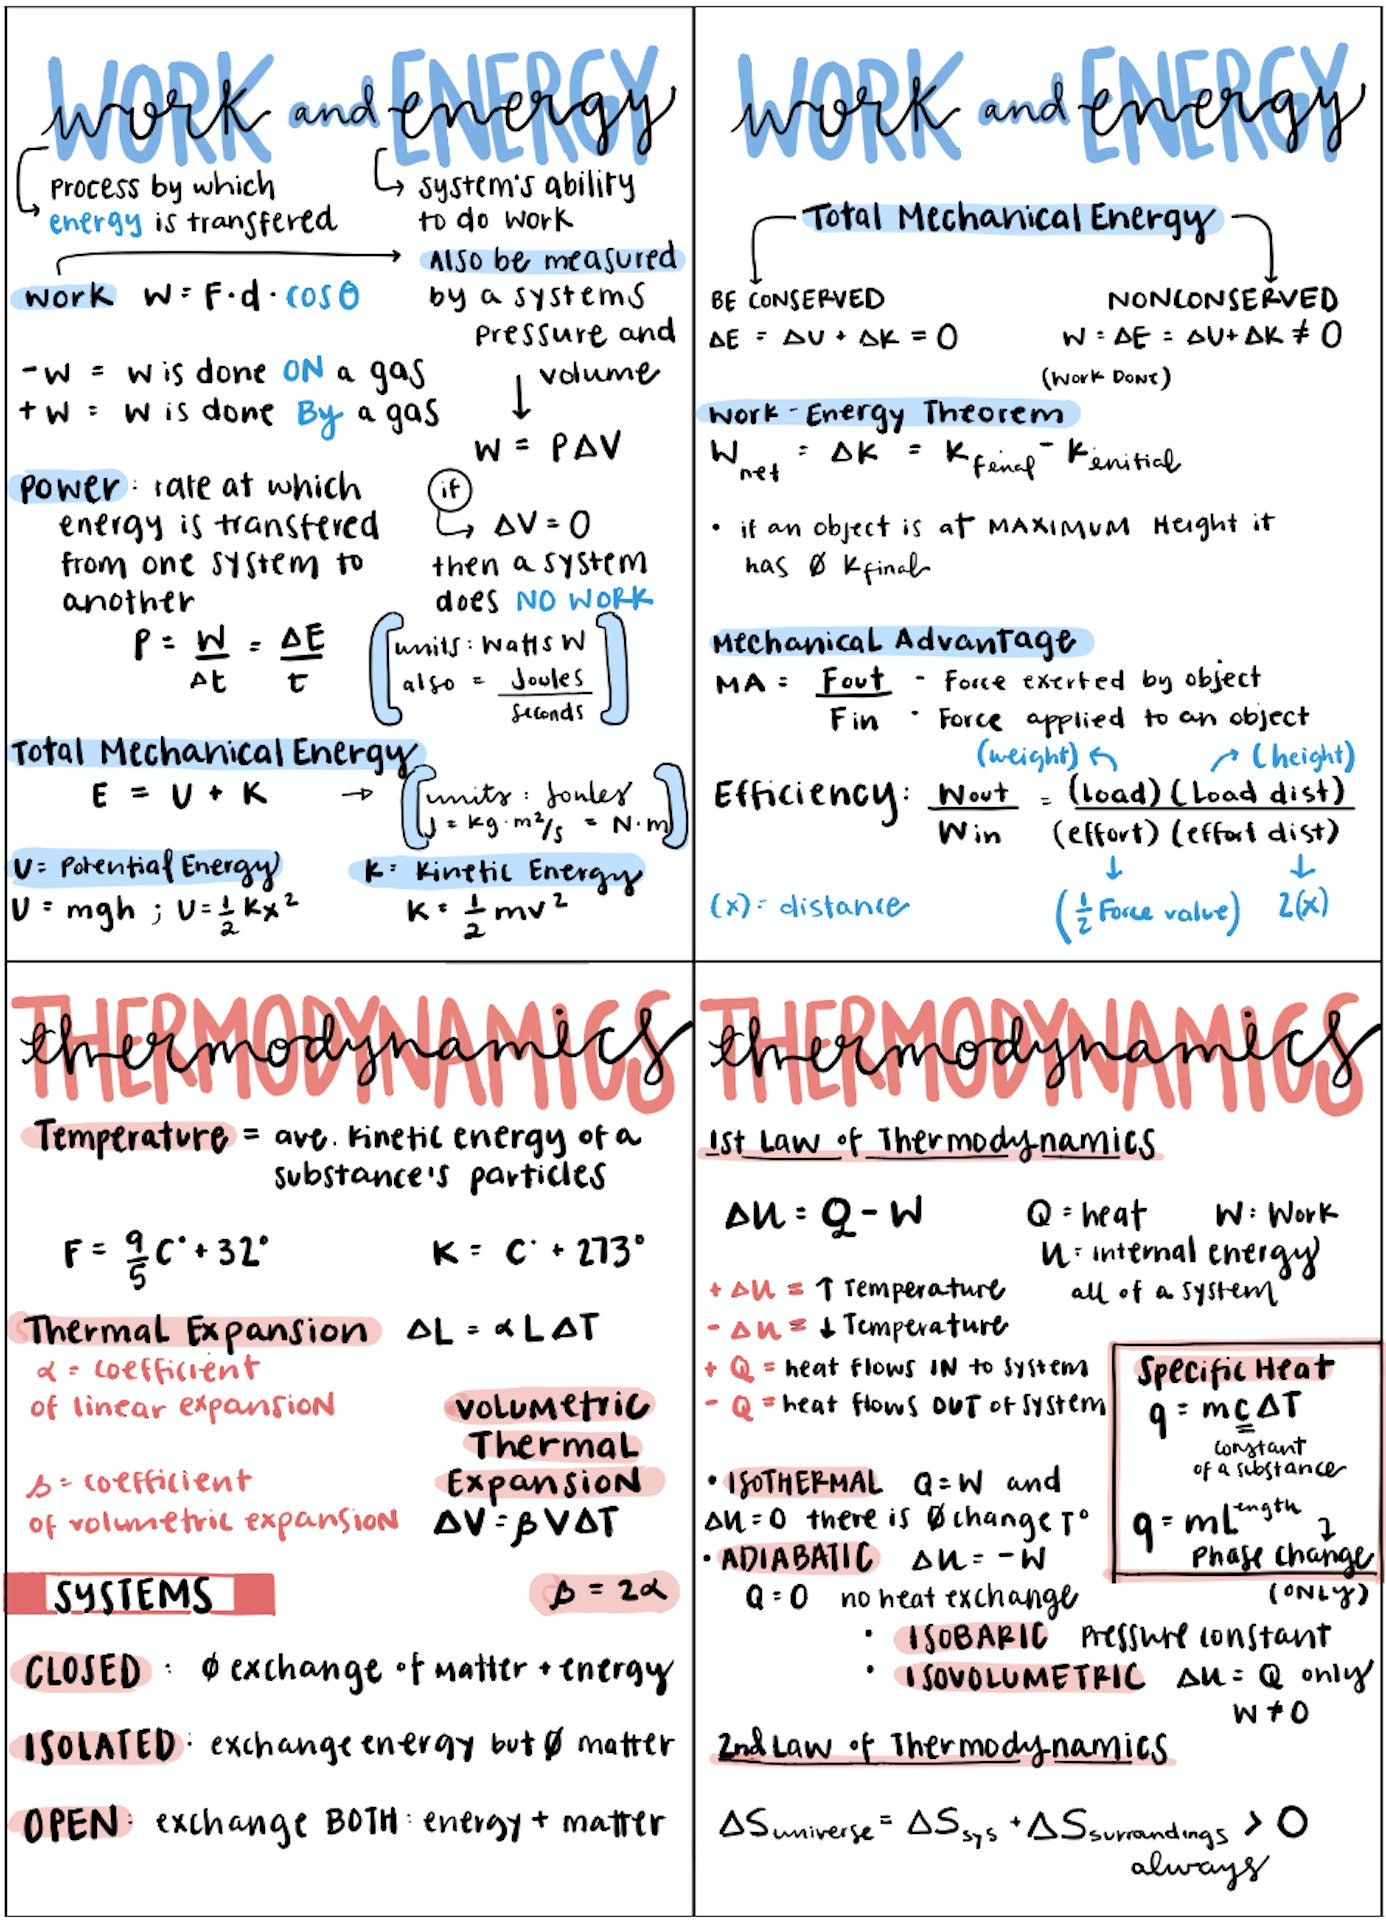 WORK and ENERGY
work and energy
process by which
energy is transfered
system's ability
to do work
work W = F · d · cosθ
-W = W is done ON a gas
+W = W is done By a gas
Also be measured
by a systems
pressure and
volume
W = PΔV
if
ΔV = 0
then a system
does NO WORK
power: rate at which
energy is transfered
from one system to
another
P = W/Δt = ΔE/t
units: Watts W
also = Joules/seconds
Total Mechanical Energy
E = U + K → units: Joules
J = kg·m²/s = N·m
U = Potential Energy
U = mgh ; U = ½ Kx²
K = Kinetic Energy
K = ½ mv²
WORK and ENERGY
work and energy
Total Mechanical Energy
BE CONSERVED
ΔE = ΔU + ΔK = 0
NONCONSERVED
W = ΔE = ΔU + ΔK ≠ 0
(Work Done)
Work-Energy Theorem
Wnet = ΔK = Kfinal - Kinitial
• if an object is at MAXIMUM Height it
has Ø Kfinal
Mechanical Advantage
MA = Fout - Force exerted by object
Fin - Force applied to an object
(weight) (height)
Efficiency: Wout/Win = (Load)(Load dist)/(effort)(effort dist)
(x) = distance (½ Force value) 2(x)
THERMODYNAMICS
thermodynamics
Temperature = ave. kinetic energy of a
substance's particles
F = 9/5 C° + 32° K = C° + 273°
Thermal Expansion ΔL = αLΔT
α = coefficient
of linear expansion
β = coefficient
of volumetric expansion
Volumetric
Thermal
Expansion
ΔV = βVΔT
β = 2α
SYSTEMS
CLOSED: Ø exchange of matter + energy
ISOLATED: exchange energy but Ø matter
OPEN: exchange BOTH: energy + matter
THERMODYNAMICS
thermodynamics
1st Law of Thermodynamics
ΔU = Q - W Q = heat W = Work
U = internal energy
all of a system
+ΔU = ↑ Temperature
-ΔU = ↓ Temperature
+Q = heat flows IN to system
-Q = heat flows OUT of system
Specific Heat
q = mcΔT
constant
of a substance
q = mLength
Phase change
(ONLY)
• ISOTHERMAL Q = W and
ΔU = 0 there is Ø change T°
• ADIABATIC ΔU = -W
Q = 0 no heat exchange
• ISOBARIC Pressure constant
• ISOVOLUMETRIC ΔU = Q only
W ≠ 0
2nd Law of Thermodynamics
ΔSuniverse = ΔSsys + ΔSsurrandings > 0
always